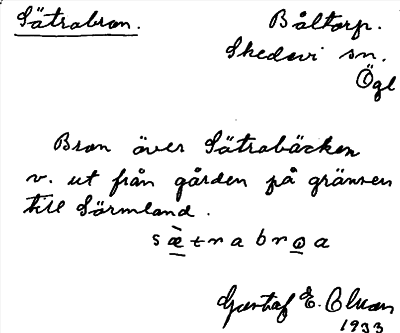 Sätrabron.
Båltorp.
Skedevi sn.
Ögl
Bron över Sätrabäcken
v. ut från gården på gränsen
till Sörmland.
sæ̀trabroa
Gustaf E. Olson
1933